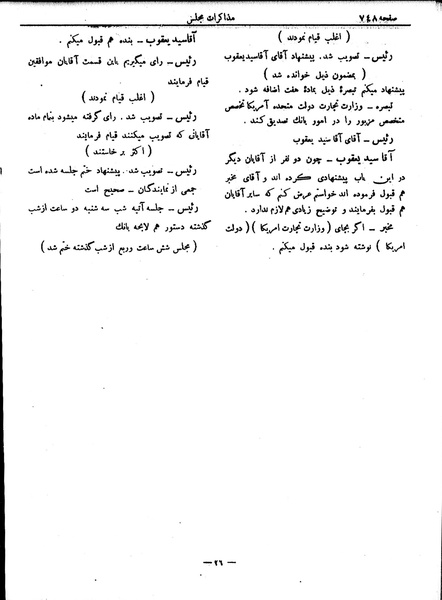 صفحه ۷۴۸
مذاکرات مجلس
( اغلب قیام نمودند )
رئیس ـ تصویب شد. پیشنهاد آقای آقاسیدیعقوب
( بمضمون ذیل خوانده شد )
پیشنهاد میکنم تبصرهٔ ذیل بمادهٔ هفت اضافه شود.
تبصره ـ وزارت تجارت دولت متحده آمریکا تخصص
متخصص مزبور را در امور بانک تصدیق کند.
رئیس ـ آقای آقا سید یعقوب
آقا سید یعقوب ـ چون دو نفر از آقایان دیگر
در این باب پیشنهادی کرده اند و آقای مخبر
هم قبول فرموده اند خواستم عرض کنم که سایر آقایان
هم قبول بفرمایند و توضیح زیادی هم لازم ندارد.
مخبر ـ اگر بجای ( وزارت تجارت امریکا ) ( دولت
امریکا ) نوشته شود بنده قبول میکنم.
آقاسیدیعقوب ـ بنده هم قبول میکنم.
رئیس ـ رای میگیریم باین قسمت آقایان موافقین
قیام فرمایند
( اغلب قیام نمودند )
رئیس ـ تصویب شد. رای گرفته میشود بتمام ماده
آقایانی که تصویب میکنند قیام فرمایند
( اکثر بر خاستند )
رئیس ـ تصویب شد. پیشنهاد ختم جلسه شده است
جمعی از نمایندگان ـ صحیح است
رئیس ـ جلسه آتیه شب سه شنبه دو ساعت از شب
گذشته دستور هم لایحه بانک
( مجلس شش ساعت و ربع از شب گذشته ختم شد )
ـ ۲۶ ـ